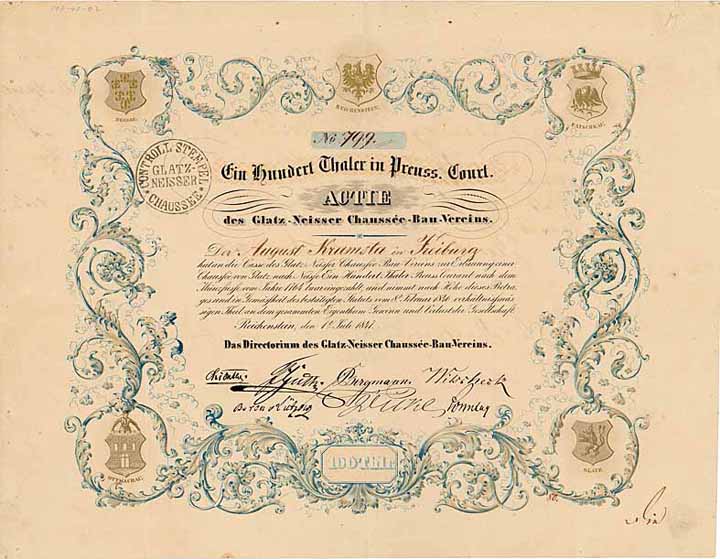 NEISSE.
REICHENSTEIN.
PATSCHKAU.
CONTROLL STEMPEL
GLATZ-
NEISSER
CHAUSSEE
No 799.
Ein Hundert Thaler in Preuss. Court.
ACTIE
des Glatz-Neisser Chaussée-Bau-Vereins.
Der August Kramsta in Freiburg
hat an die Casse des Glatz-Neisser Chaussée-Bau-Vereins zur Erbauung einer
Chaussée von Glatz nach Neisse Ein Hundert Thaler Preuss. Courant nach dem
Münzfusse vom Jahre 1764 baar eingezahlt, und nimmt nach Höhe dieses Betra-
ges und in Gemässheit des bestätigten Statuts vom 8. Februar 1846 verhältnissmäs-
sigen Theil an dem gesammten Eigenthum Gewinn und Verlust der Gesellschaft.
Reichenstein, den 1. Juli 1847.
Das Directorium des Glatz-Neisser Chaussée-Bau-Vereins.
Bergmann
OTTMACHAU.
100 THLR
GLATZ.